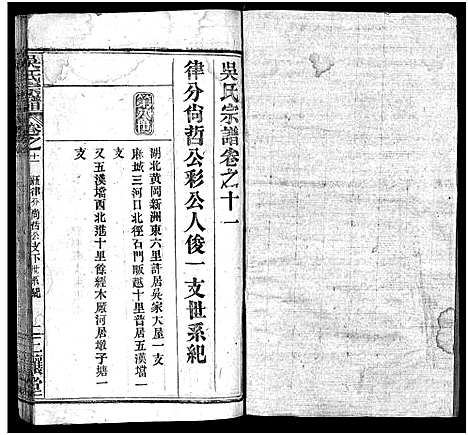 吳氏宗譜卷之十一
律分尙哲公彩公人俊一支世系紀
湖北黃岡新洲東六里許居吳家大屋一支
麻城三河口北徑石門畈越十里昔居五漢壋一
支
又五漢壋西北進十里餘經木厰河居墩子塘一
支
吳氏宗譜
卷之十一
律分尙哲公支下世系紀
一
三讓堂